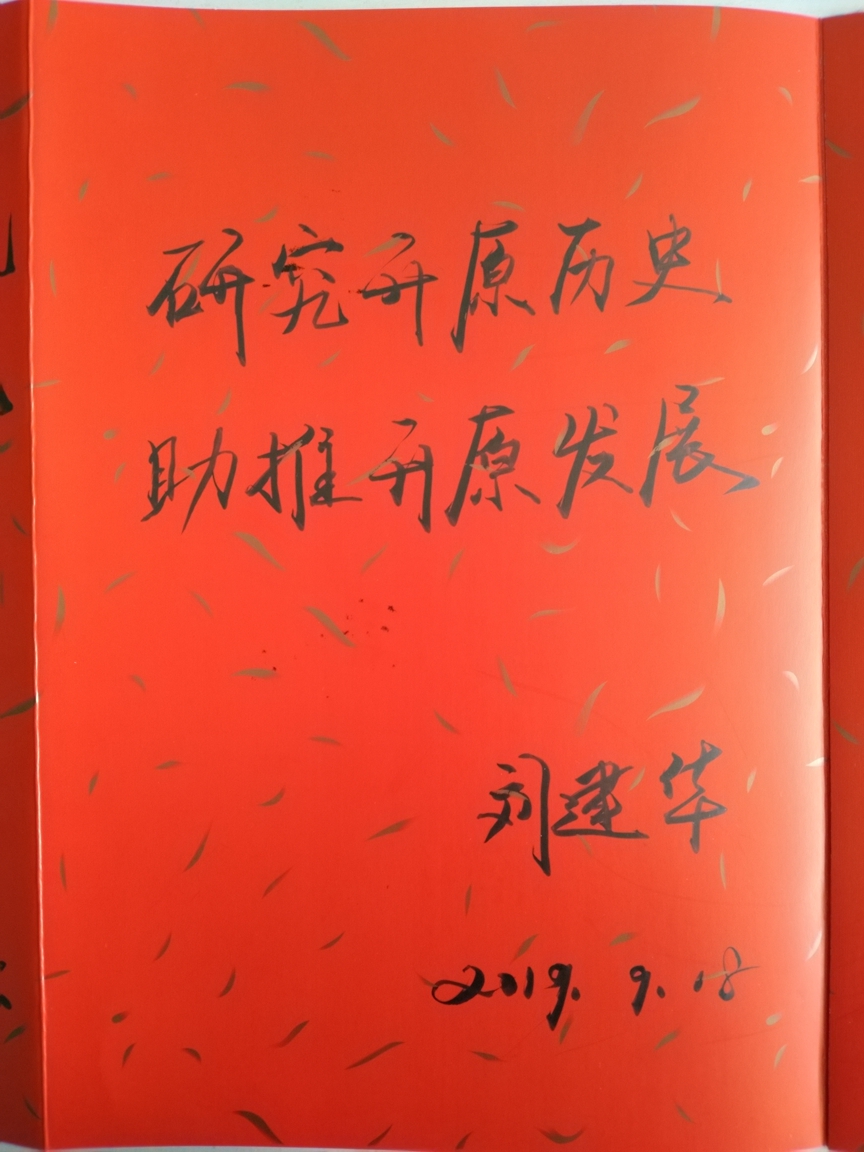 研究开原历史
助推开原发展
刘建华
2019. 9. 18